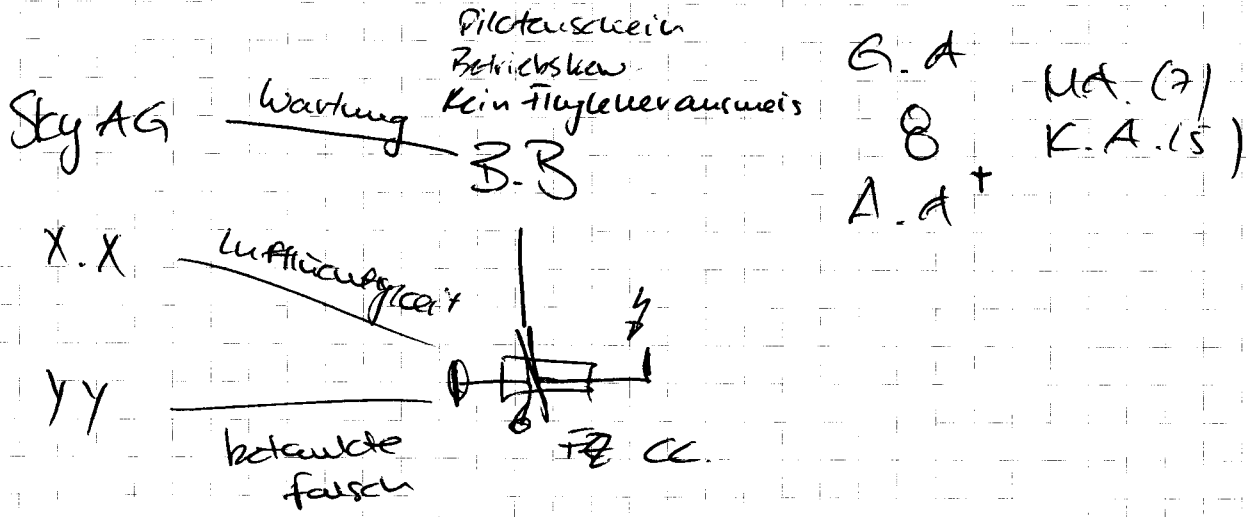 Pilotenschein
Betriebsbew
Kein Fluglehrerausweis
Sky AG Wartung B.B
G.A
8
A.A †
MA. (7)
K.A. (5)
X.X Lufttüchtigkeit
YY betankte falsch
CC.